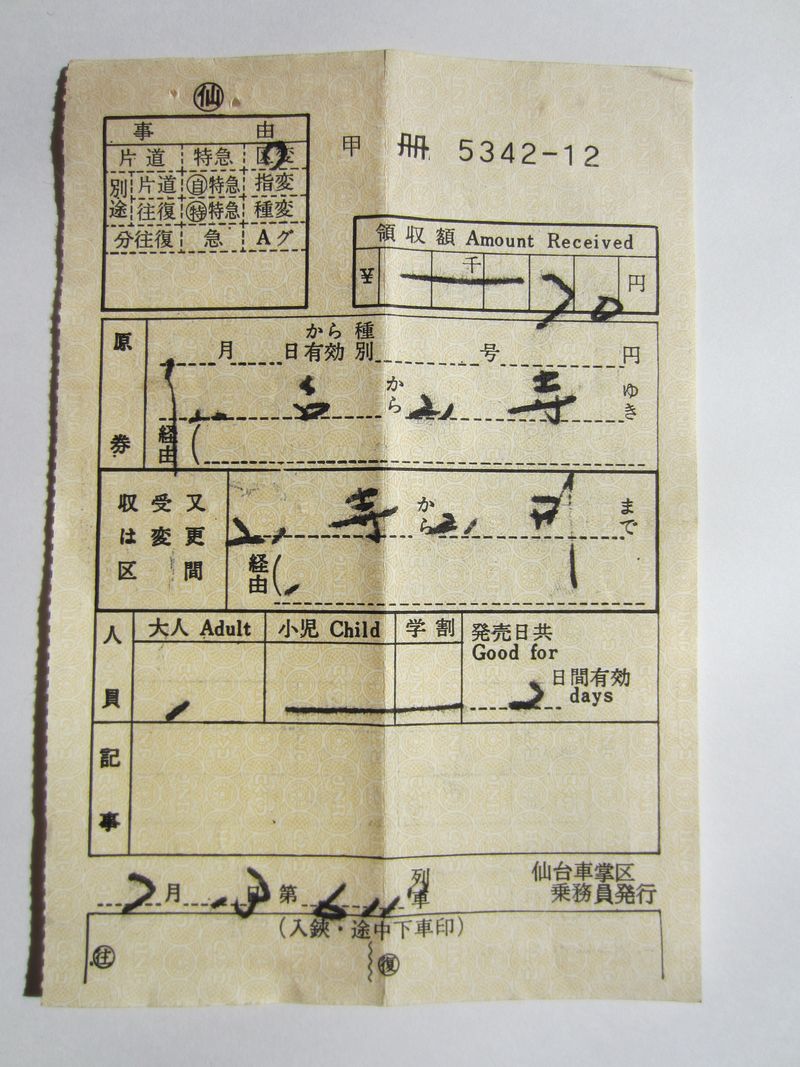 仙
事由
片道 特急 区変
別途 片道 自特急 指変
往復 特特急 種変
分往復 急 Aグ
甲 冊 5342-12
領収額 Amount Received
¥ 千 70 円
原券
月 日から有効 種別 号 円
台 から 2, 寺 ゆき
経由 (
収受又は区間変更
2, 寺 から 2, まで
経由 (
人員
大人 Adult 小児 Child 学割
発売日共
Good for
2 日間有効
days
記事
7月 日 第 611 列車
仙台車掌区
乗務員発行
(入鋏・途中下車印)
往 復